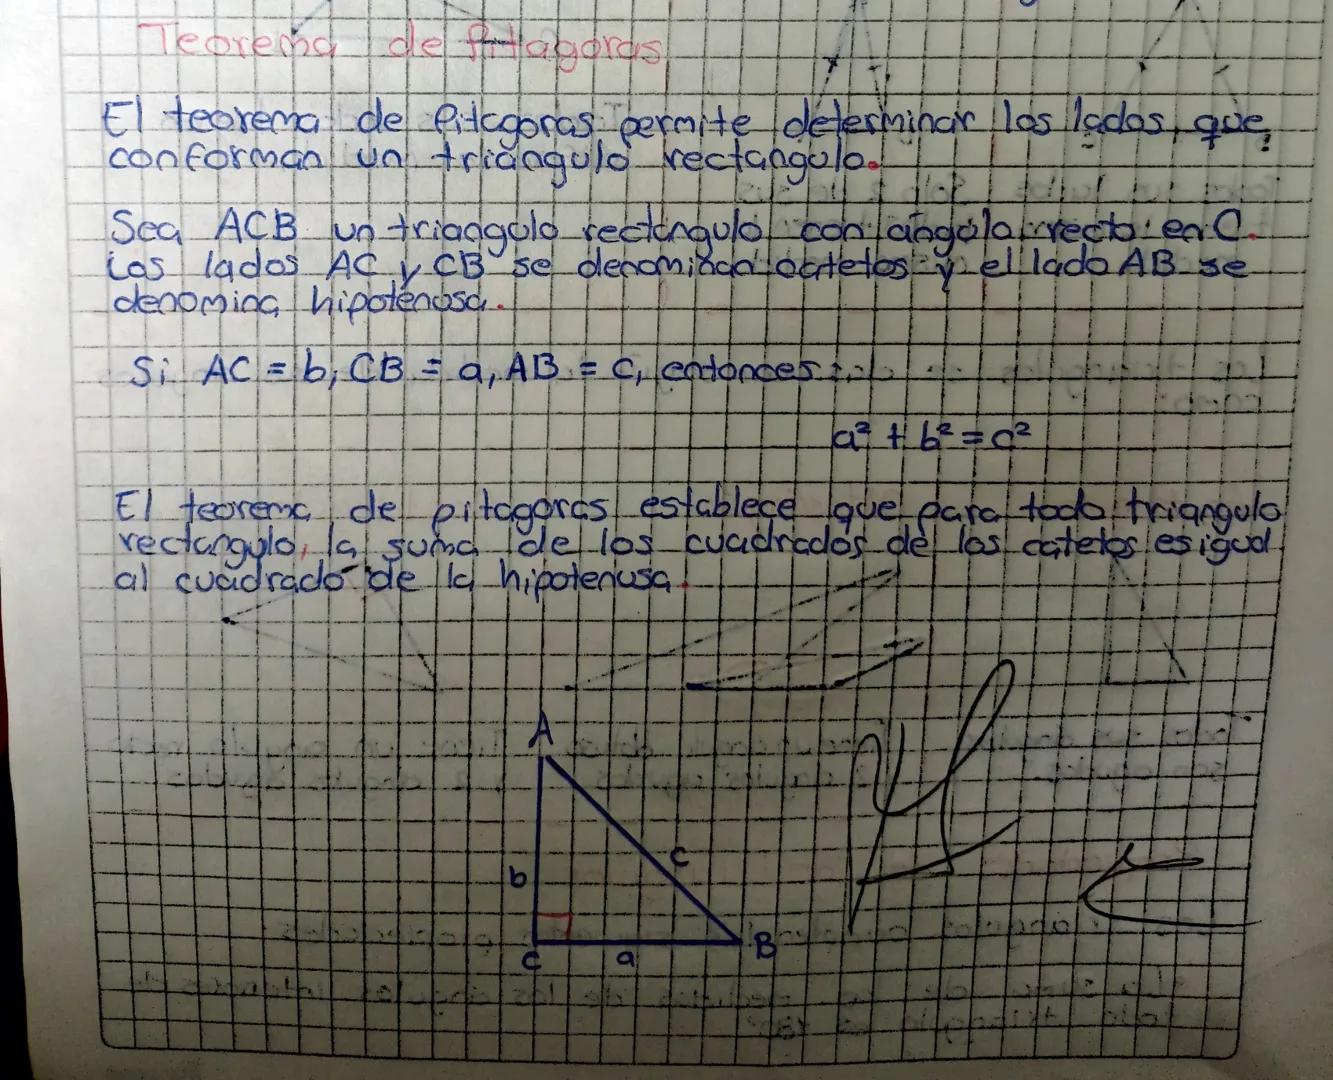 Teorema de Pitagoras
El teorema de Pitagoras permite determinar los lados que
conforman un triángulo rectangulo.
Sea ACB un triangulo rectángulo con ángulo recto en C.
Los lados AC y CB se denominan catetos y el lado AB se
denomina hipotenusa.
Si AC = b, CB = a, AB = c, entonces:
a² + b² = c²
El teorema de pitagoras establece que para todo triangulo
rectangulo, la suma de los cuadrados de los catetos es igual
al cuadrado de la hipotenusa.
A
b c
C a B